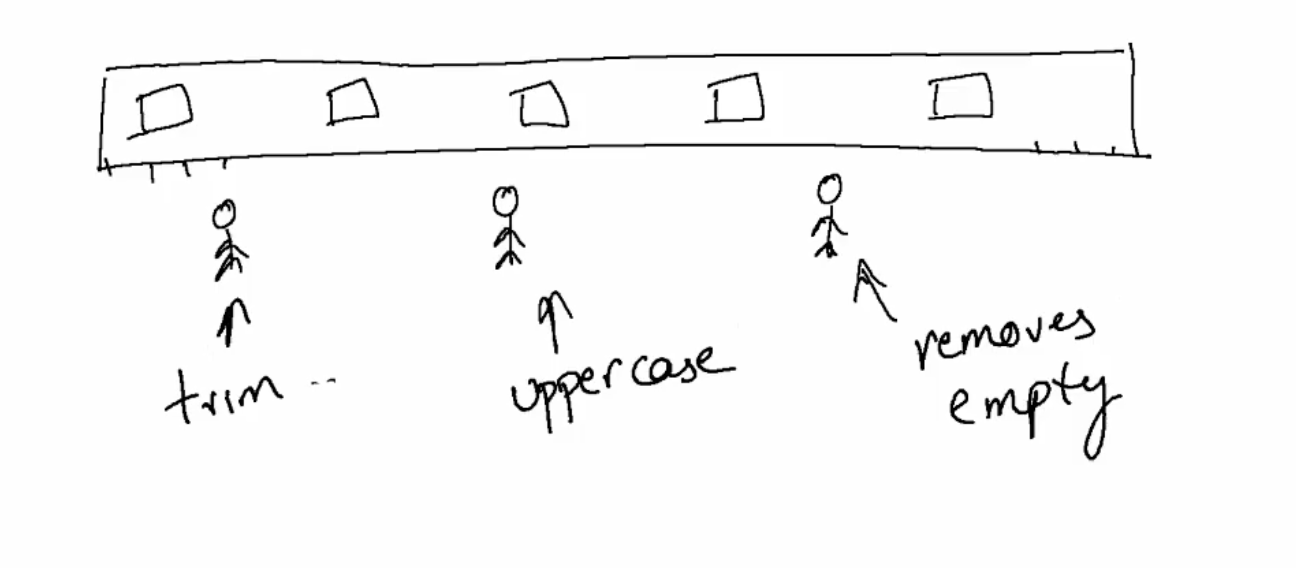 trim --
uppercase
removes
empty